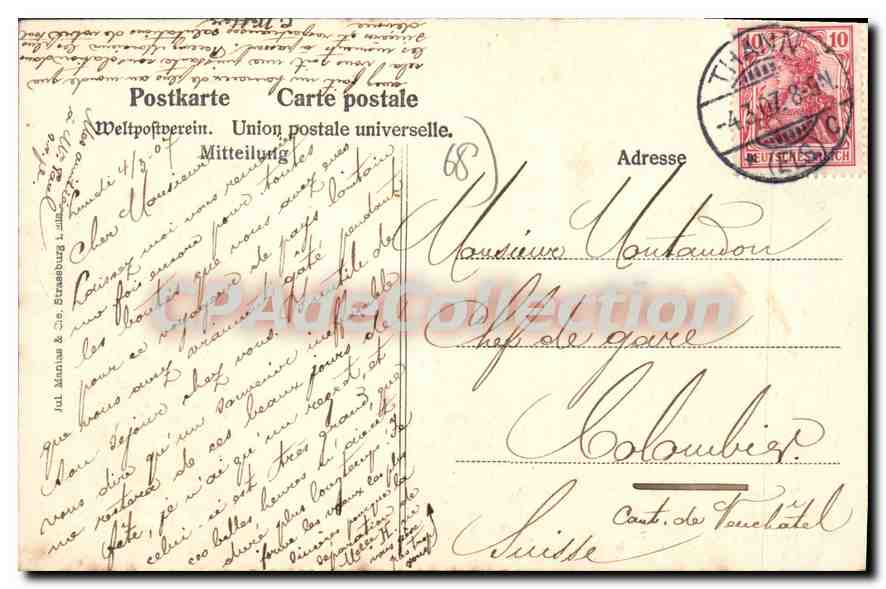 Postkarte Carte postale
Weltpostverein. Union postale universelle.
Mitteilung
Adresse
68
THANN
-4.3.07. 8-9N.
(ELS.) c
10 10
DEUTSCHES REICH
Jul. Manias & Cie, Strassburg i. Els.
Lundi 4/3 07
Cher Monsieur
Laissez moi vous remercier
une fois encore pour toutes
les bontés que vous avez eues
pour ce voyageur de pays lointain
que vous avez vraiment gâté pendant
son séjour chez vous. Inutile de
vous dire qu'un souvenir ineffaçable
me restera de ces beaux jours de
fête, je n'ai qu'un regret, et
celui-ci est très grand, que
ces belles heures n'aient
duré plus longtemps. Je
forme les vœux les plus
sincères pour que la
séparation de
Monsieur Montandon
Chef de gare
Colombier
Cant. de Neuchâtel
Suisse
CPAdeCollection